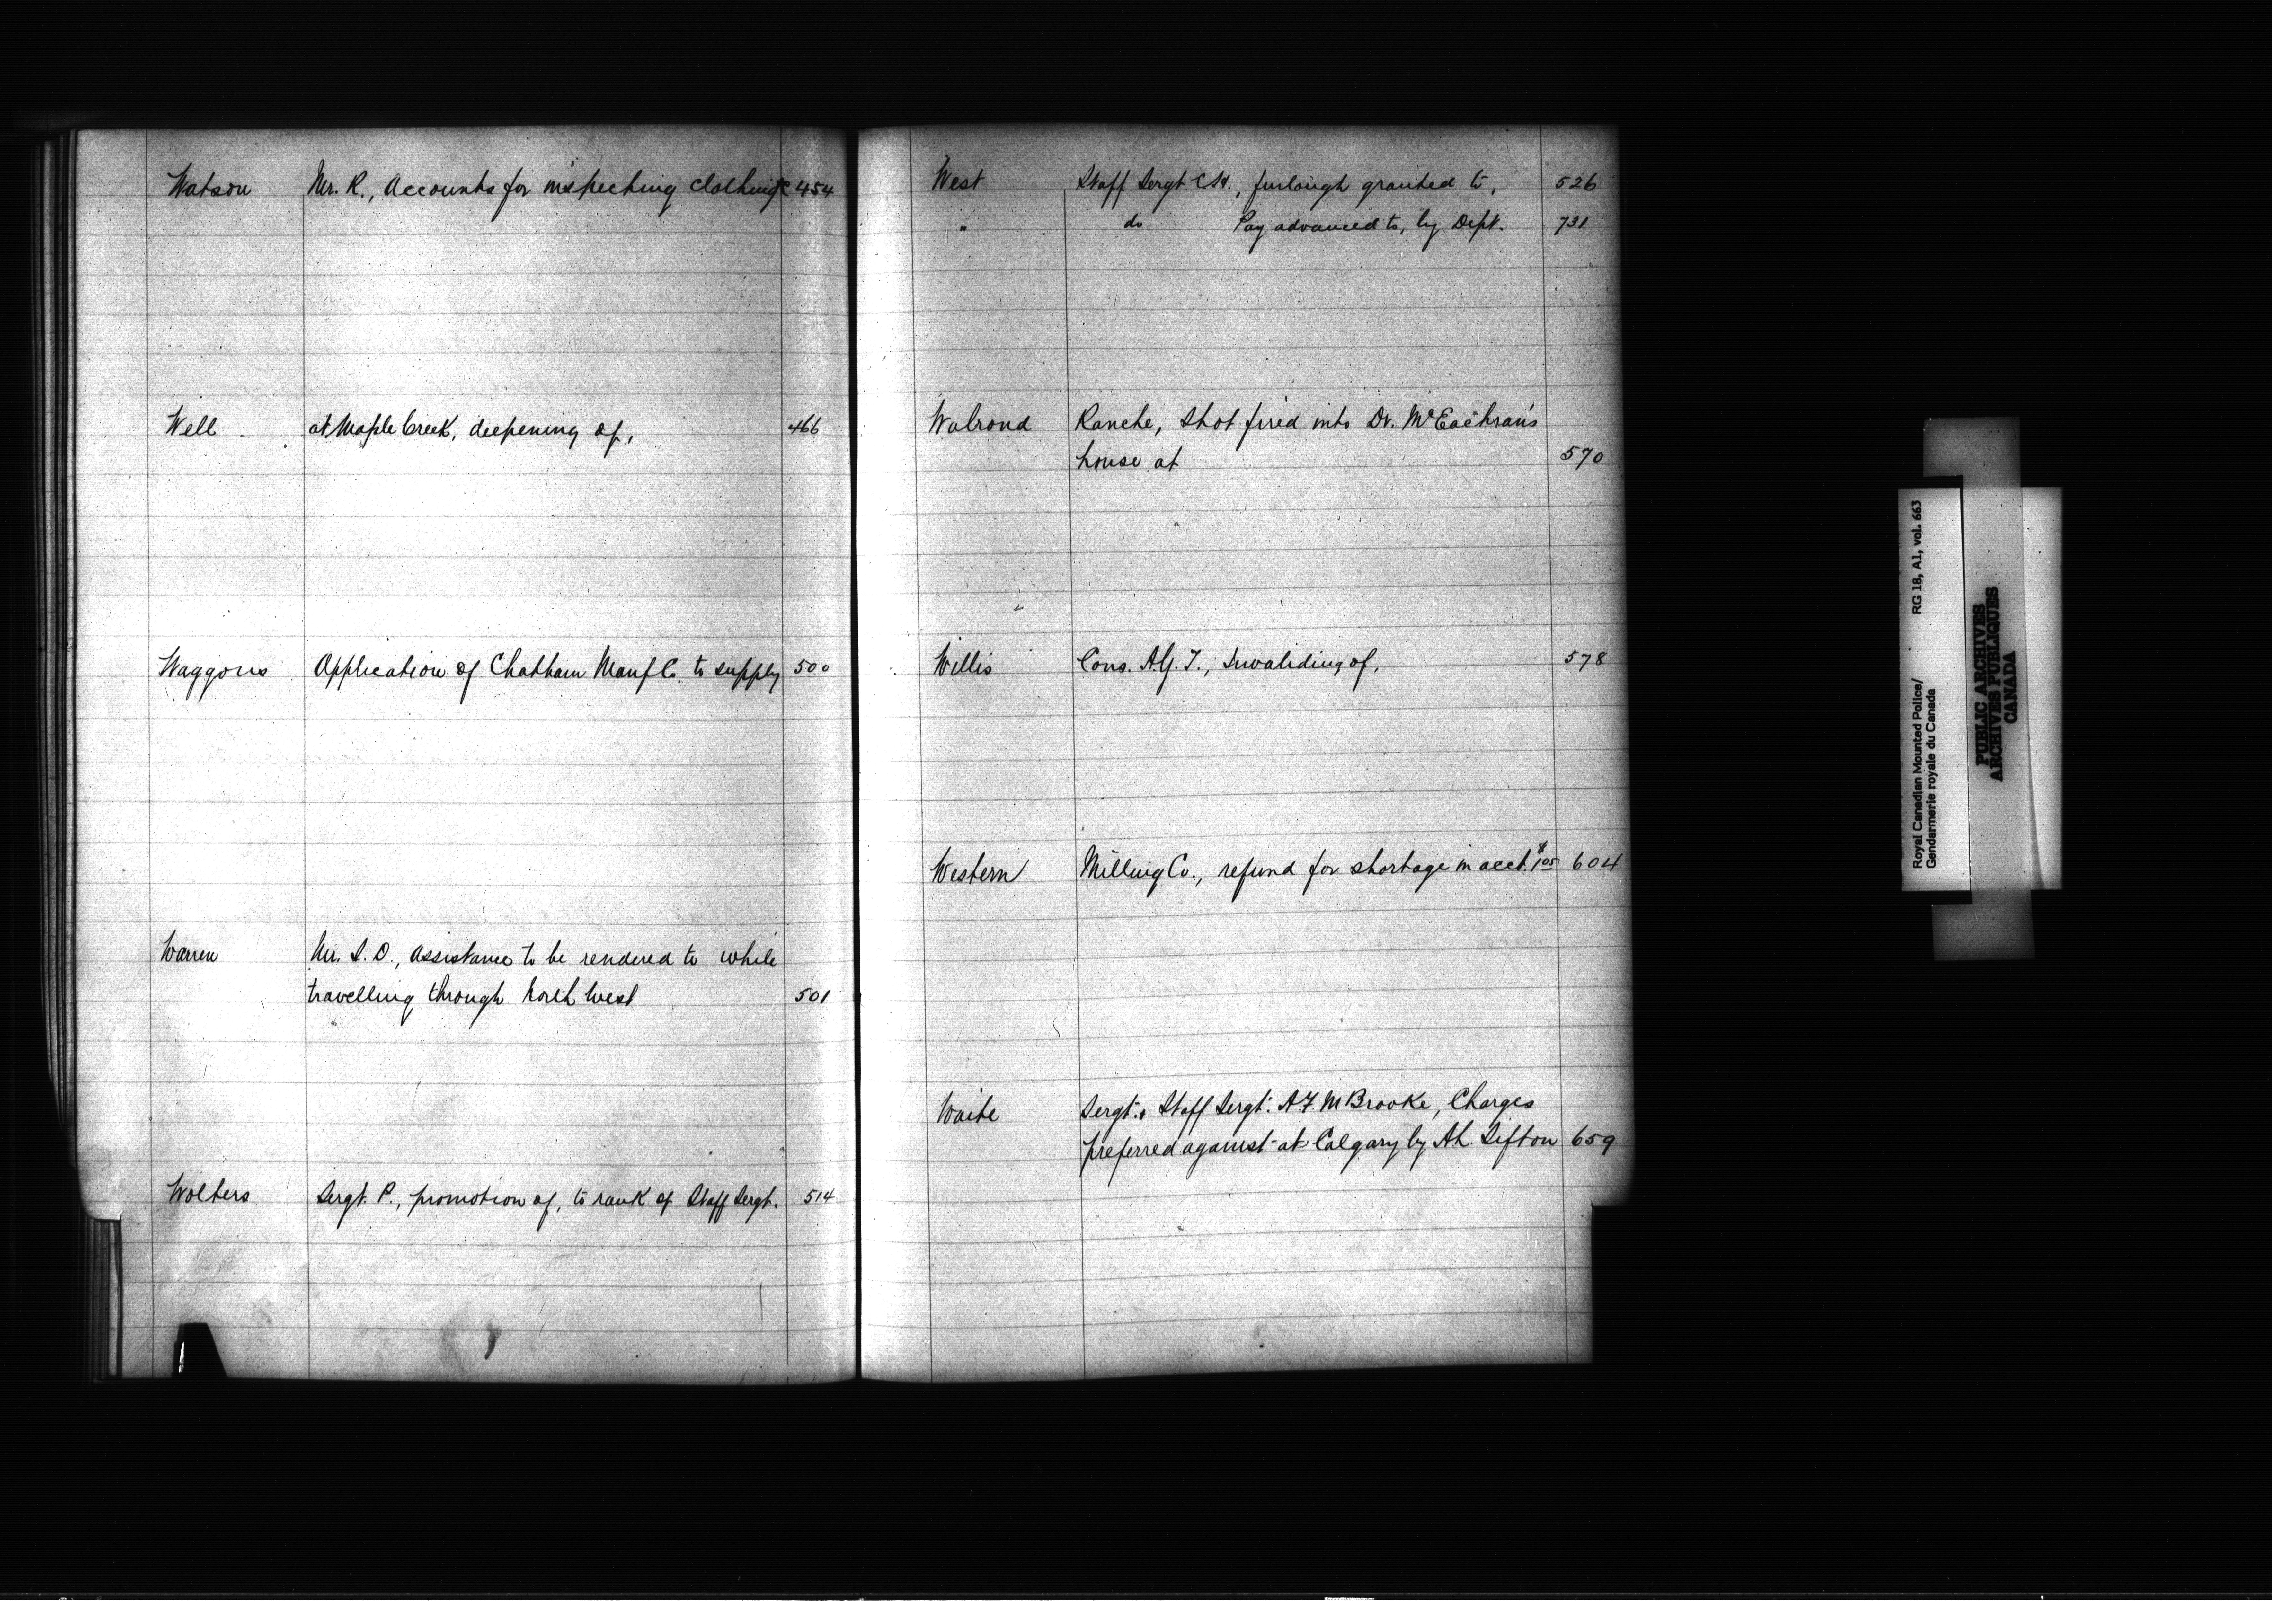 Watson Mr. R., Accounts for inspecting clothing &c 454
Well at Maple Creek, deepening of, 466
Waggons Application of Chatham Manf Co. to supply 500
Warren Mr. S. D., assistance to be rendered to while
travelling through North West 501
Wolters Sergt. P., promotion of, to rank of Staff Sergt. 514
West Staff Sergt. C.H., furlough granted to, 526
" do Pay advanced to, by Dept. 731
Walrond Ranche, Shot fired into Dr. McEachran's
house at 570
Willis Cons. A.G.T., Invaliding of, 578
Western Milling Co., refund for shortage in acct. $1.05 604
Waite Sergt. & Staff Sergt. A F M Brooke, Charges
preferred against at Calgary by A L Sifton 659
Royal Canadian Mounted Police/ RG 18, A1, vol. 663
Gendarmerie royale du Canada
PUBLIC ARCHIVES
ARCHIVES PUBLIQUES
CANADA